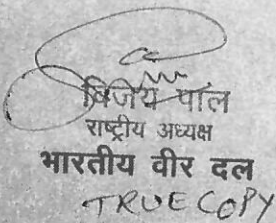 विजेय पाल
राष्ट्रीय अध्यक्ष
भारतीय वीर दल
TRUE COPY